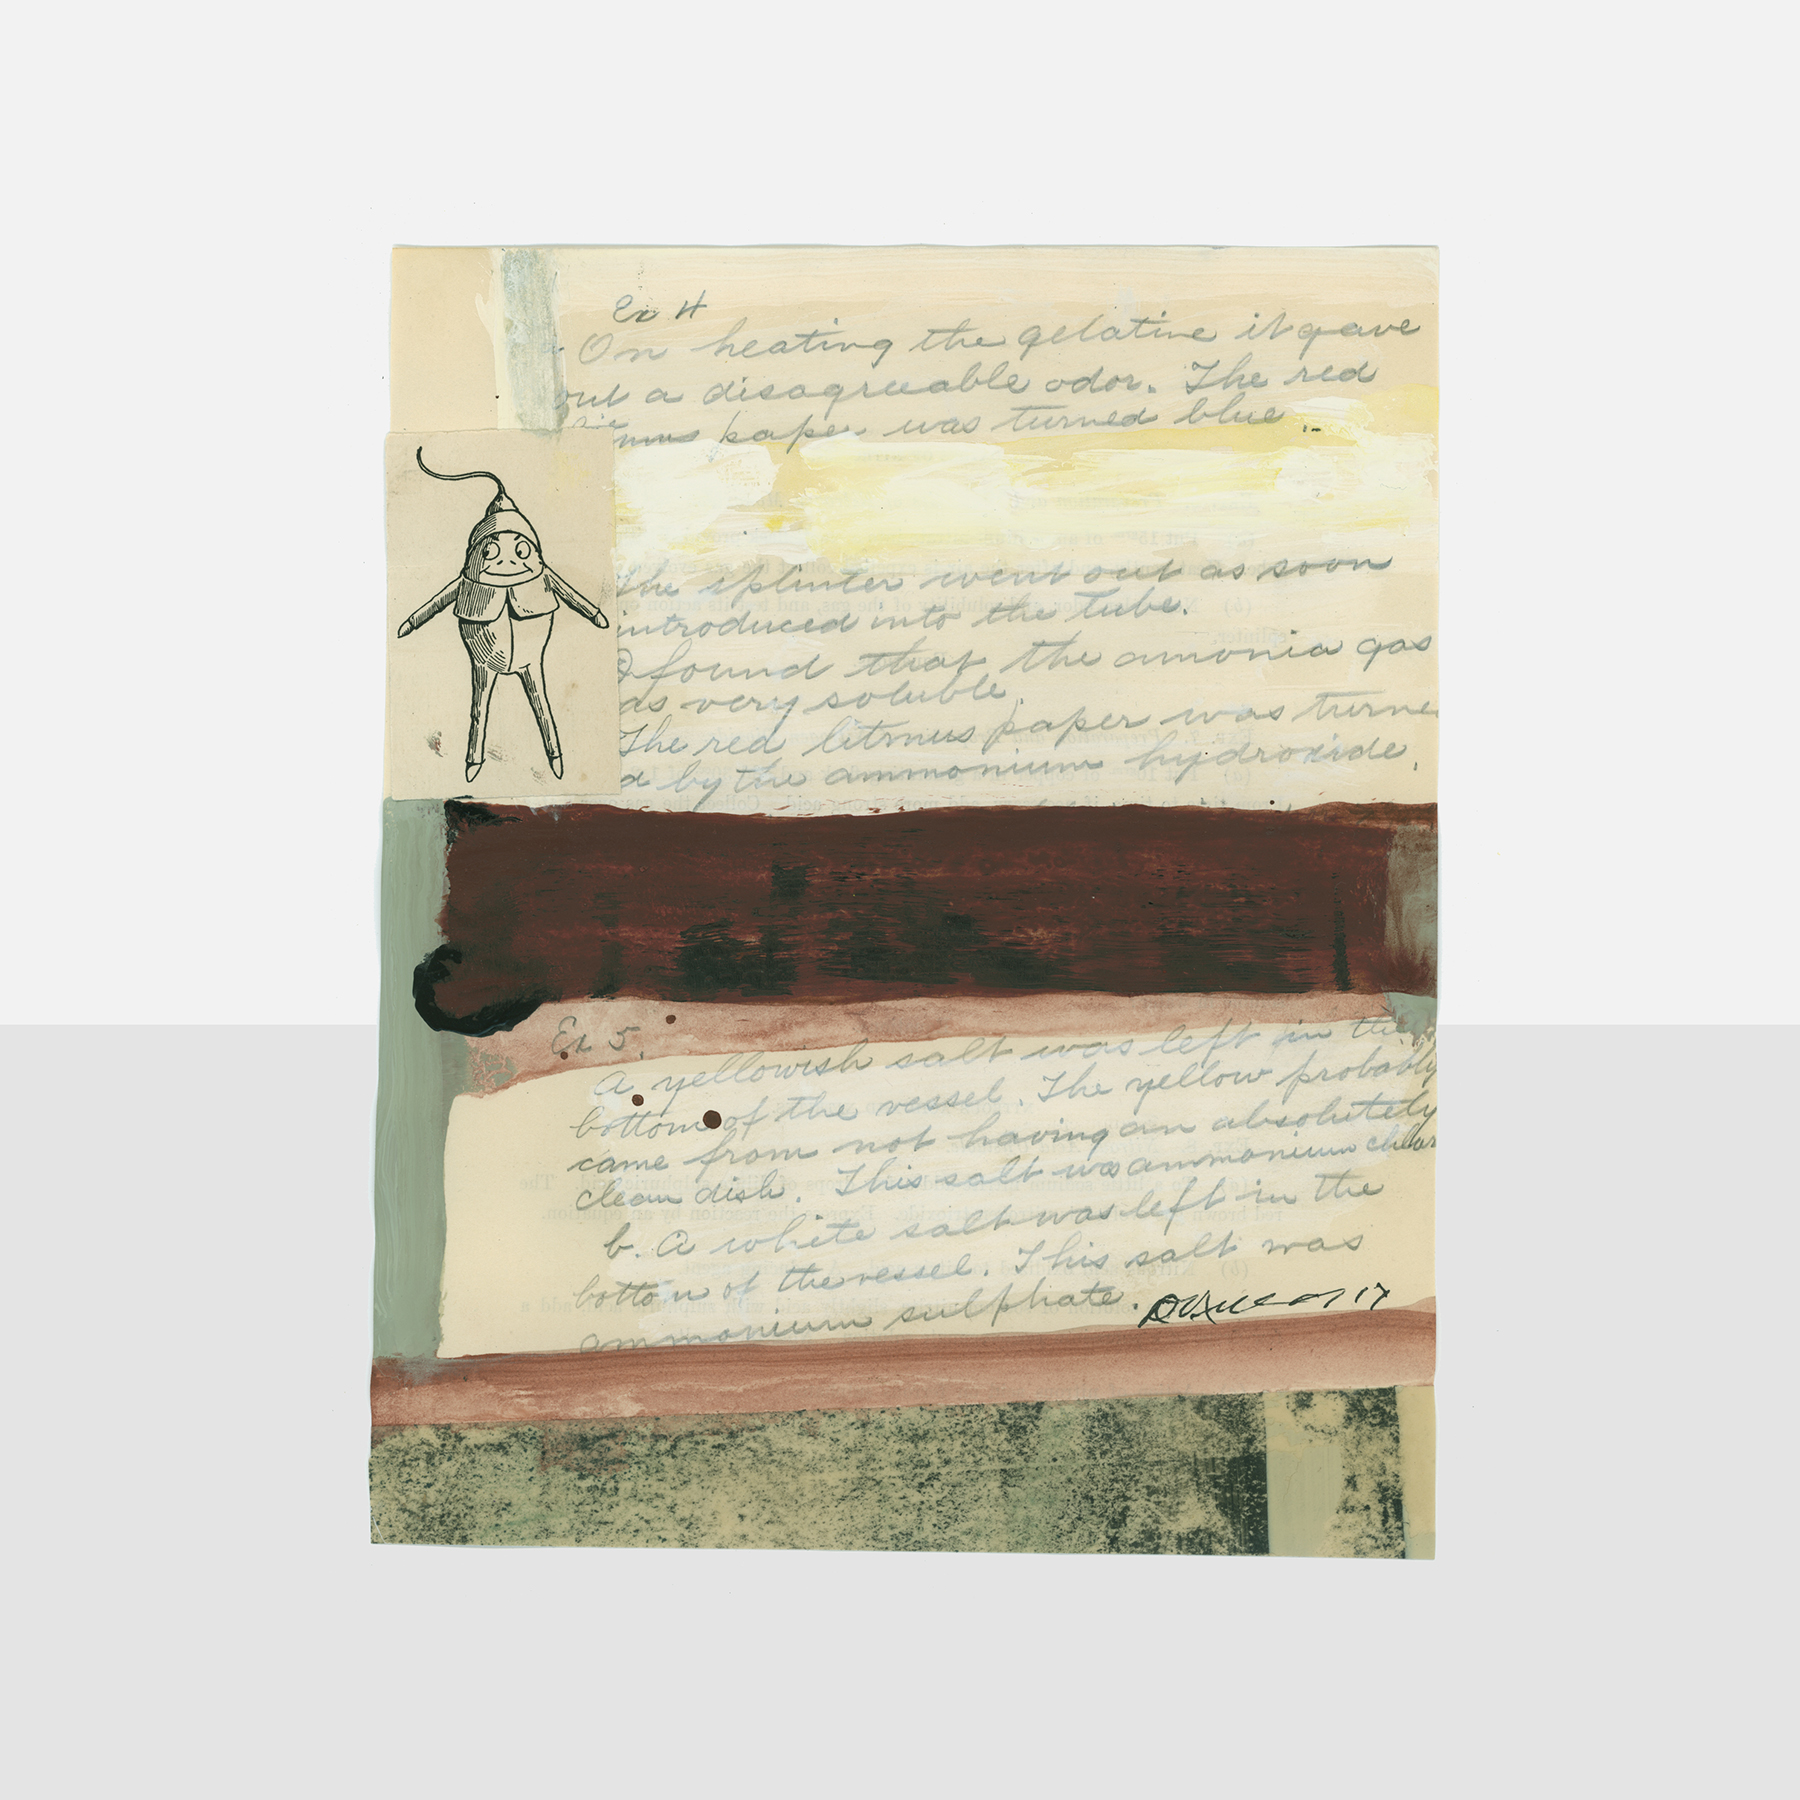 Ex 4
On heating the gelatine it gave
out a disagreeable odor. The red
paper was turned blue.
The splinter went out as soon
introduced into the tube.
I found that the amonia gas
as very soluble.
The red litmus paper was turne
d by the ammonium hydroxide.
Ex 5.
A yellowish salt was left in the
bottom of the vessel. The yellow probably
came from not having an absolutely
clean dish. This salt was ammonium chlor
b. A white salt was left in the
bottom of the vessel. This salt was
ammonium sulphate.
17